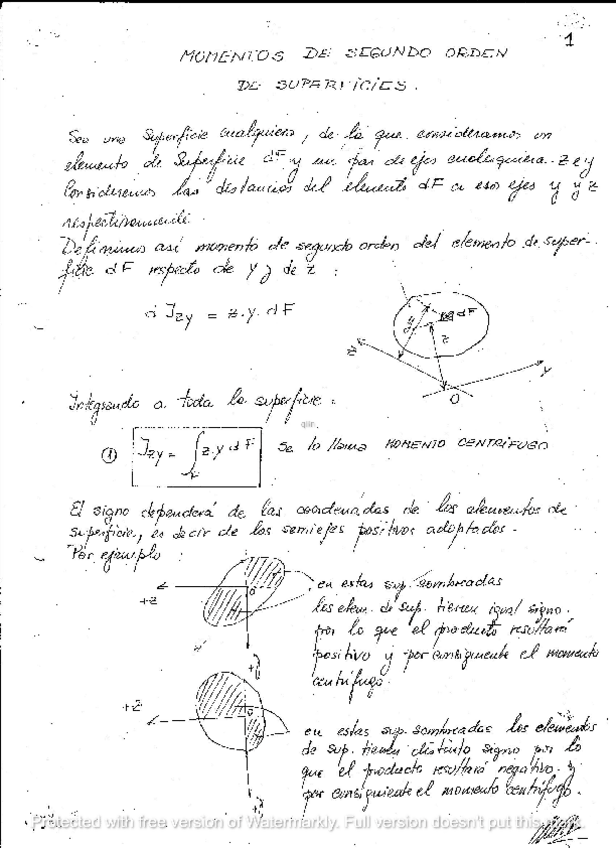 1
MOMENTOS DE SEGUNDO ORDEN
DE SUPERFICIES.
Sea una Superficie cualquiera, de la que consideramos un
elemento de Superficie dF y un par de ejes cualesquiera z e y
Consideremos las distancias del elemento dF a esos ejes y y z
respectivamente.
Definimos así momento de segundo orden del elemento de super-
ficie dF respecto de y y de z :
d Jzy = z.y.dF
dF
y
z
z
y
O
Integrando a toda la superficie :
① Jzy = ∫F z.y dF Se lo llama MOMENTO CENTRÍFUGO
El signo dependerá de las coordenadas de los elementos de
superficie, es decir de los semiejes positivos adoptados.
Por ejemplo :
+z
O
+y
en estas sup. sombreadas
los elem. de sup. tienen igual signo.
por lo que el producto resultará
positivo y por consiguiente el momento
centrífugo.
+z
O
+y
en estas sup. sombreadas los elementos
de sup. tienen distinto signo por lo
que el producto resultará negativo y
por consiguiente el momento centrífugo.
Protected with free version of Watermarkly. Full version doesn't put this mark.